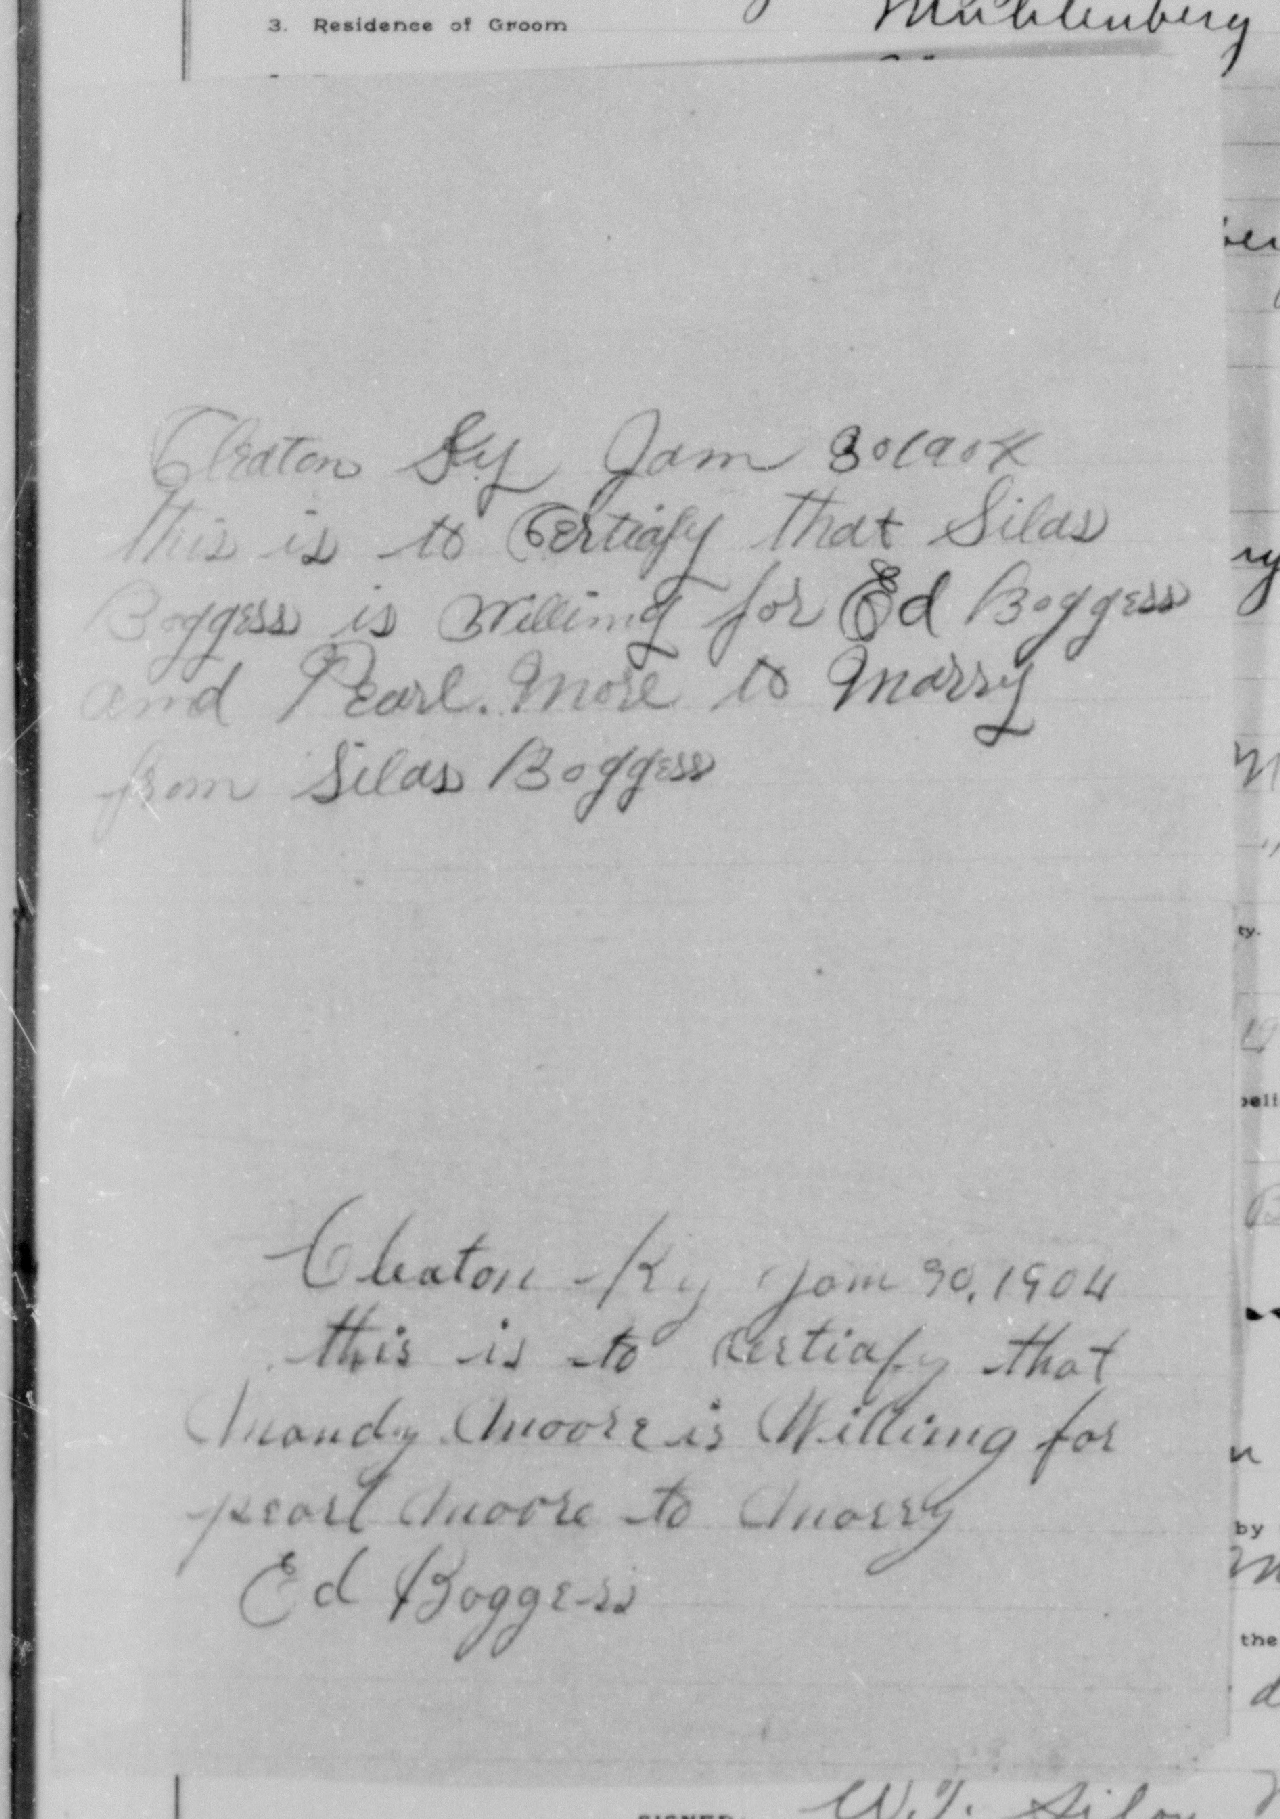 3. Residence of Groom Muhlenberg
Cleaton Ky Jam 30 1904
this is to Certiafy that Silas
Boggess is Willimg for Ed Boggess
and Pearl. More to Marry
from Silas Boggess
ty.
Cleaton Ky Jam 30, 1904
this is to certiafy that
Mandy Moore is Willimg for
by
pearl Moore to Marry
Ed Boggess
the
W.T.